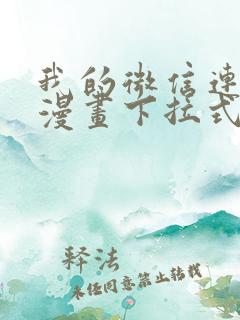 我的微信连
漫畫下拉式
释法
未经同意禁止转载